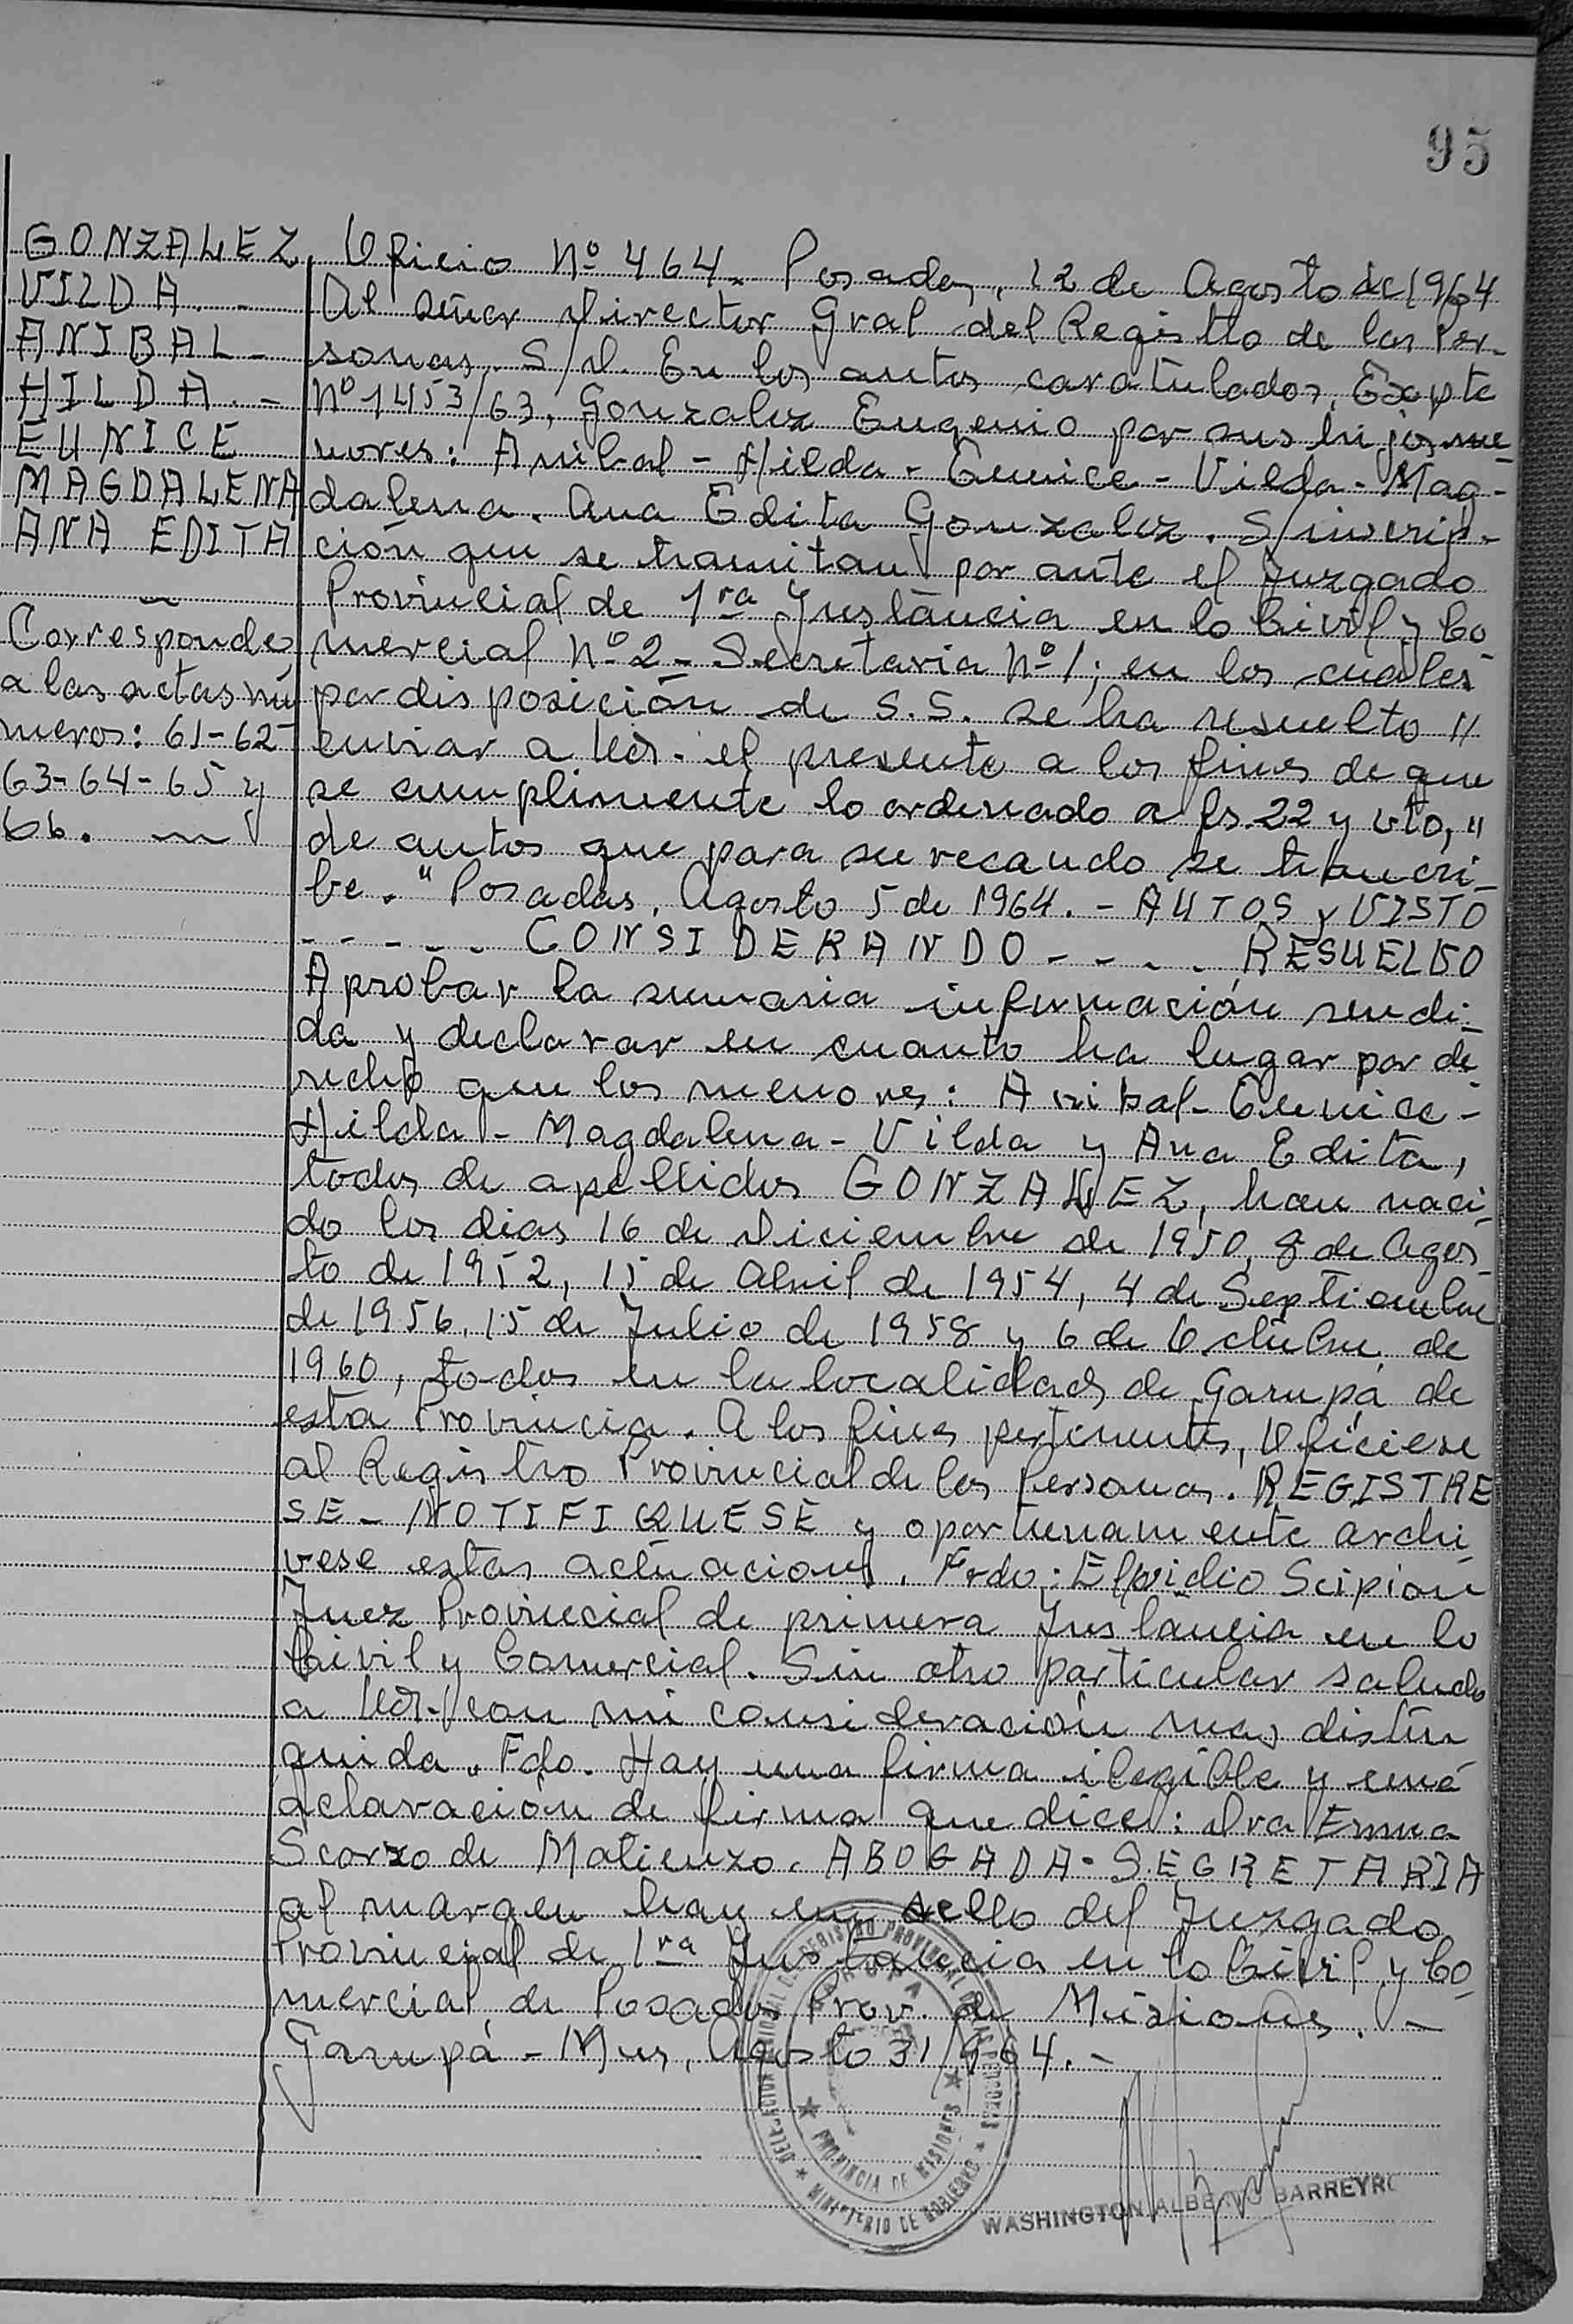 95
GONZALEZ
VILDA. -
ANIBAL -
HILDA. -
EUNICE
MAGDALENA
ANA EDITA
Corresponde
a las actas nú
meros: 61-62-
63-64-65 y
66.
Oficio Nº 464. Posadas, 12 de Agosto de 1964
Al señor Director Gral del Registro de las Per-
sonas. S/D. En los autos caratulados, Expte
Nº 1453/63, Gonzalez Eugenio por sus hijos me-
nores: Anibal - Hilda - Eunice - Vilda - Mag-
dalena. Ana Edita Gonzalez. S/inscrip-
ción que se tramitan por ante el Juzgado
Provincial de 1ra Instancia en lo Civil y Co-
mercial Nº 2 - Secretaria Nº 1; en los cuales
por disposición de S.S. se ha resuelto "
enviar a Ud. el presente a los fines de que
se cumplimente lo ordenado a fs. 22 y vto, "
de autos que para su recaudo se trancri-
be. " Posadas, Agosto 5 de 1964. - AUTOS y VISTO
- - - - - CONSIDERANDO - - - - RESUELVO
Aprobar la sumaria información rendi-
da y declarar en cuanto ha lugar por de-
recho que los menores: Anibal - Eunice -
Hilda - Magdalena - Vilda y Ana Edita,
todos de apellidos GONZALEZ, han naci-
do los dias 16 de Diciembre de 1950, 8 de Agos-
to de 1952, 15 de Abril de 1954, 4 de Septiembre
de 1956, 15 de Julio de 1958 y 6 de Octubre de
1960, todos en la localidad de Garupá de
esta Provincia. A los fines pertenentes, Ofíciese
al Registro Provincial de las Personas. REGISTRE
SE - NOTIFIQUESE y oportunamente archi-
vese estas actuaciones. Frdo: Elpidio Scipioni
Juez Provincial de primera Instancia en lo
Civil y Comercial. Sin otro particular saludo
a Ud. con mi consideración mas distin
guida. Fdo. Hay una firma ilegible y una
aclaración de firma que dice: Dra Emma
Scorzo de Matienzo. ABOGADA - SEGRETARIA
al margen hay un sello del Juzgado
Provincial de 1ra Instancia en lo Civil y Co-
mercial de Posadas Prov. de Misiones. -
Garupá - Mnes, Agosto 31/964. -
DELEGACION REGISTRO PROVINCIAL DE LAS PERSONAS
GARUPA
PROVINCIA DE MISIONES
MINISTERIO DE GOBIERNO
WASHINGTON ALBERTO BARREYRO